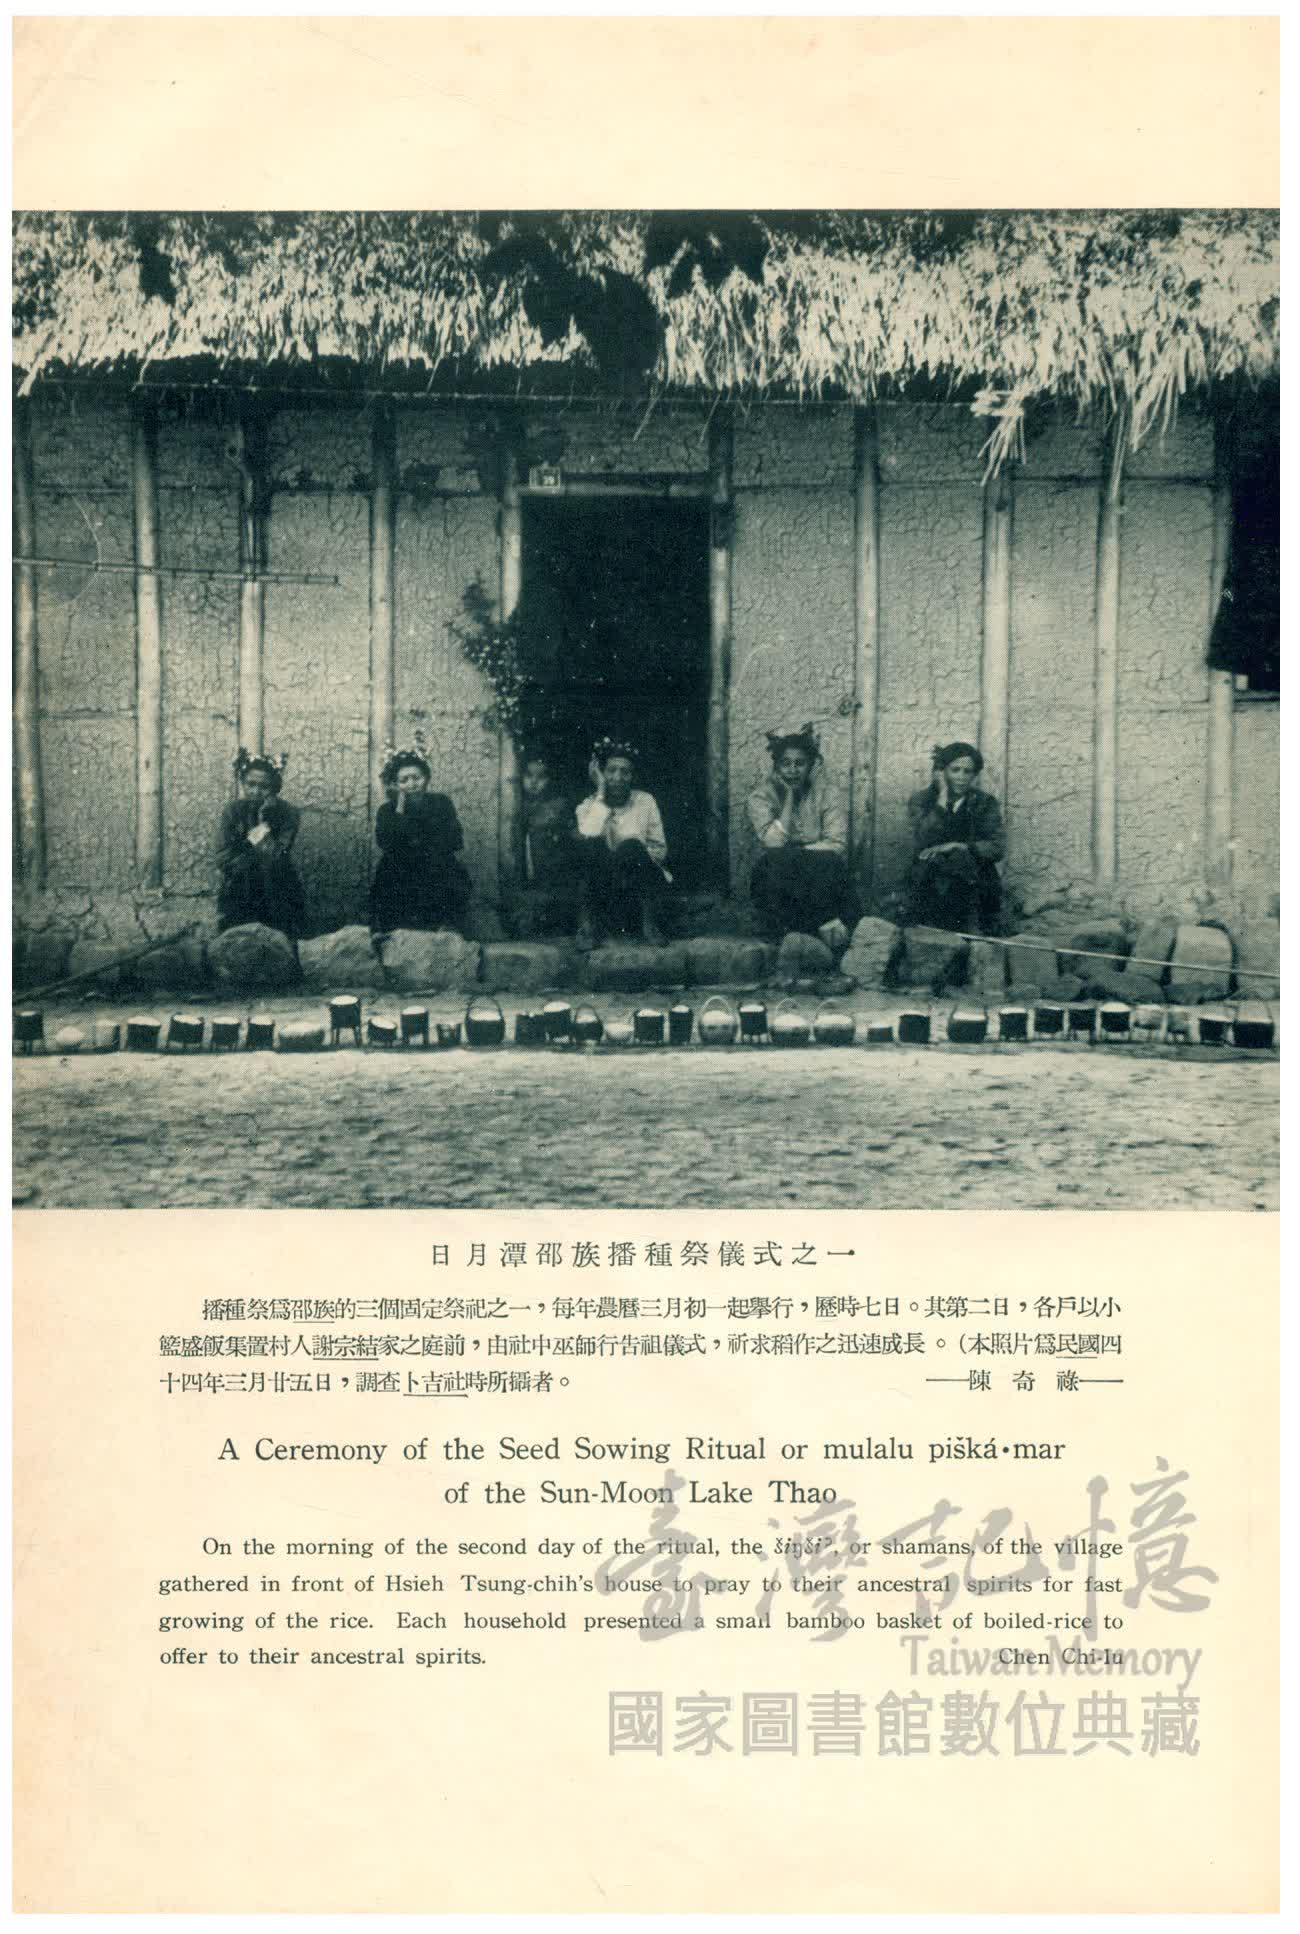 日月潭邵族播種祭儀式之一
播種祭爲邵族的三個固定祭祀之一，每年農曆三月初一起擧行，歷時七日。其第二日，各戶以小
籃盛飯集置村人謝宗結家之庭前，由社中巫師行告祖儀式，祈求稻作之迅速成長。（本照片爲民國四
十四年三月廿五日，調查卜吉社時所攝者。 ——陳奇祿——
A Ceremony of the Seed Sowing Ritual or mulalu pišká·mar
of the Sun-Moon Lake Thao
On the morning of the second day of the ritual, the šiŋšiʔ, or shamans, of the village
gathered in front of Hsieh Tsung-chih's house to pray to their ancestral spirits for fast
growing of the rice. Each household presented a small bamboo basket of boiled-rice to
offer to their ancestral spirits. Chen Chi-lu
臺灣記憶
Taiwan Memory
國家圖書館數位典藏